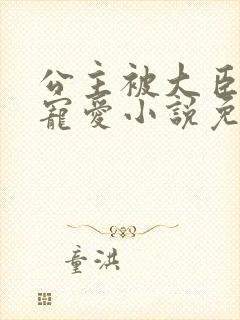 公主被大臣
寵愛小說免
童洪